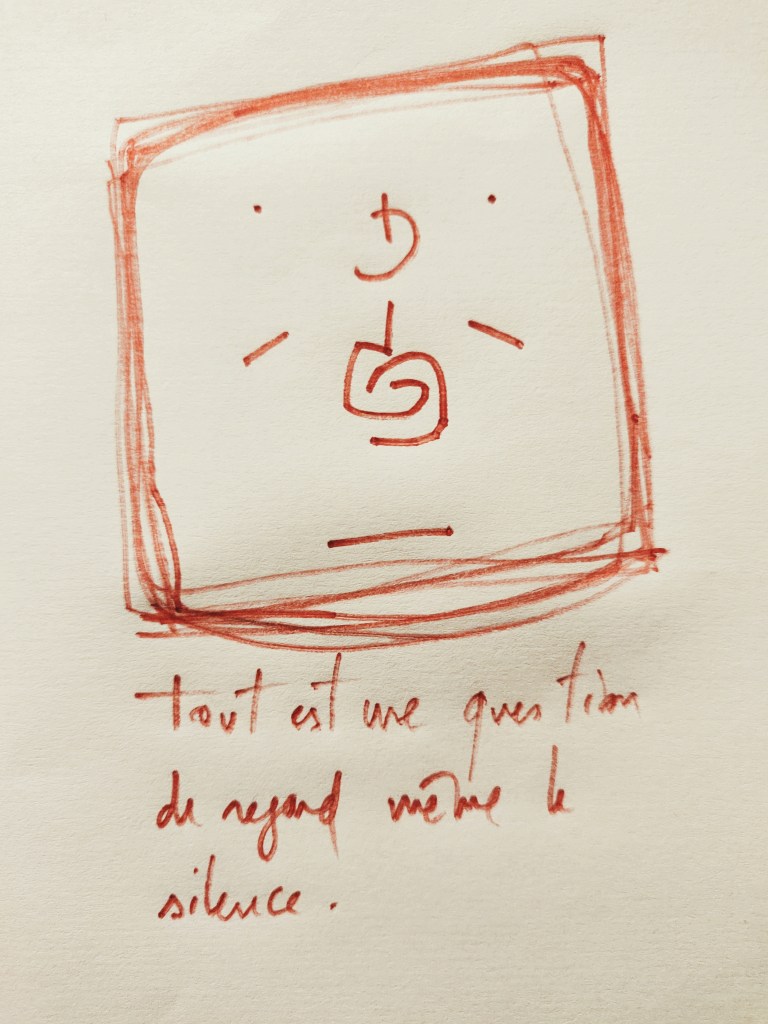 Tout est une question
de regard même le
silence.